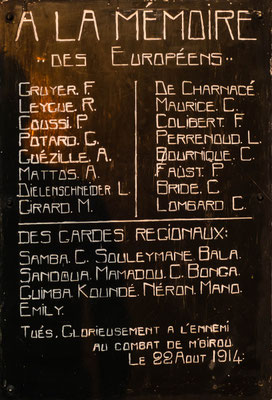 A LA MÉMOIRE
DES EUROPÉENS
GRUYER. F.
LEYGUE. R.
COUSSI. P.
POTARD. G.
GUÉZILLE. A.
MATTOS. A.
DIELENSCHNEIDER L.
GIRARD. M.
DE CHARNACÉ
MAURICE. C.
COLIBERT. F.
PERRENOUD. L.
BOURNIQUE. C.
FAUST. P.
BRIDE. C.
LOMBARD C.
DES GARDES REGIONAUX:
SAMBA. C. SOULEYMANE. BALA.
SANDOUA. MAMADOU. C. BONGA.
GUIMBA. KOUNDÉ. NÉRON. MANO.
EMILY.
TUÉS, GLORIEUSEMENT A L'ENNEMI
AU COMBAT DE M'BIROU
LE 22 AOUT 1914: